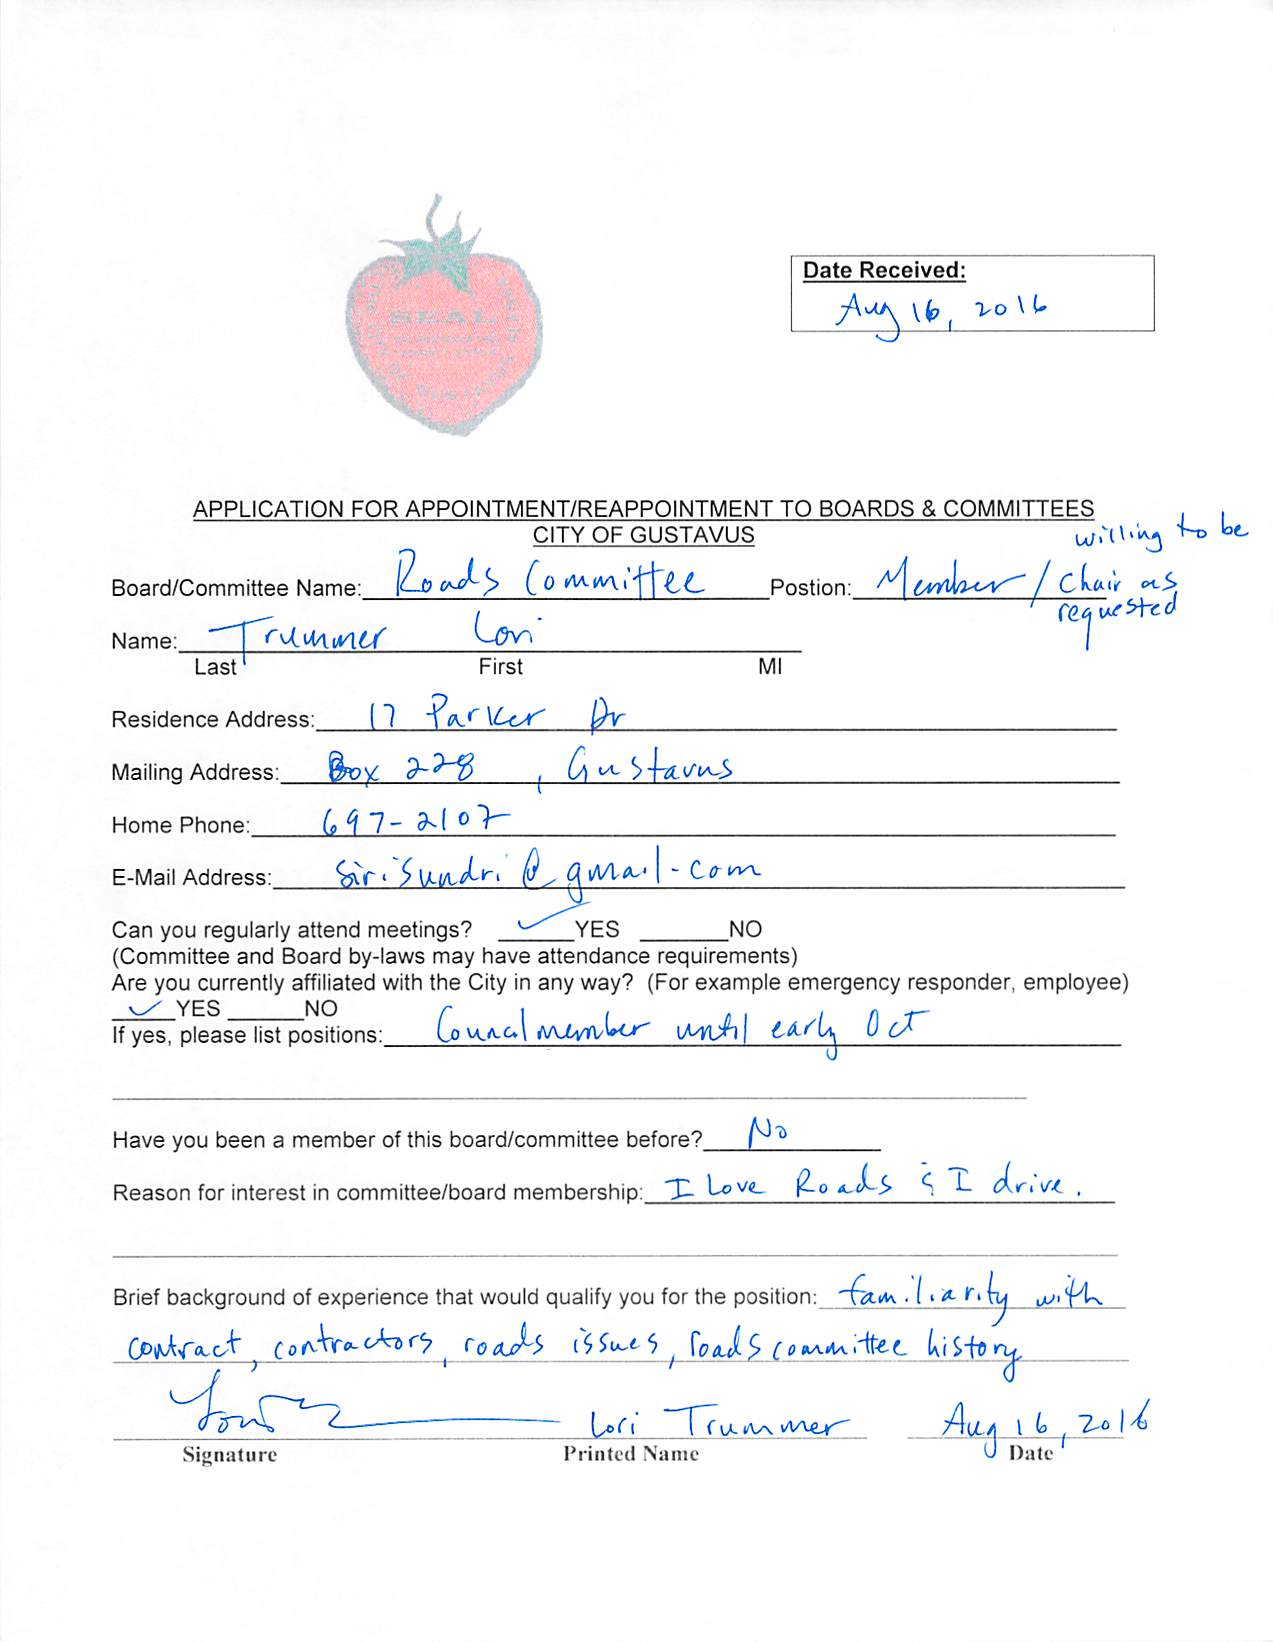 SEAL
Date Received:
Aug 16, 2016
APPLICATION FOR APPOINTMENT/REAPPOINTMENT TO BOARDS & COMMITTEES
CITY OF GUSTAVUS
Board/Committee Name: Roads Committee Postion: Member / willing to be Chair as requested
Name: Trummer Lori
Last First MI
Residence Address: 17 Parker Dr
Mailing Address: Box 228, Gustavus
Home Phone: 697-2107
E-Mail Address: SiriSundri@gmail.com
Can you regularly attend meetings? ✓ YES ______ NO
(Committee and Board by-laws may have attendance requirements)
Are you currently affiliated with the City in any way? (For example emergency responder, employee)
✓ YES ______ NO
If yes, please list positions: Councilmember until early Oct
Have you been a member of this board/committee before? No
Reason for interest in committee/board membership: I Love Roads & I drive.
Brief background of experience that would qualify you for the position: familiarity with
contract, contractors, roads issues, roads committee history
Lori Trummer Aug 16, 2016
Signature Printed Name Date